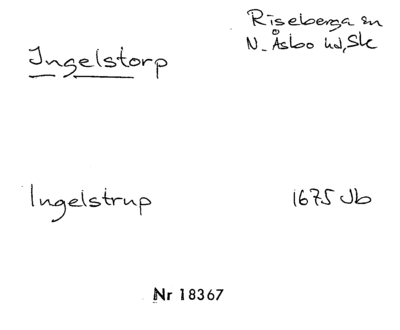 Riseberga sn
Ingelstorp
N. Åsbo hd, Sk
Ingelstrup 1675 Jb
Nr 18367